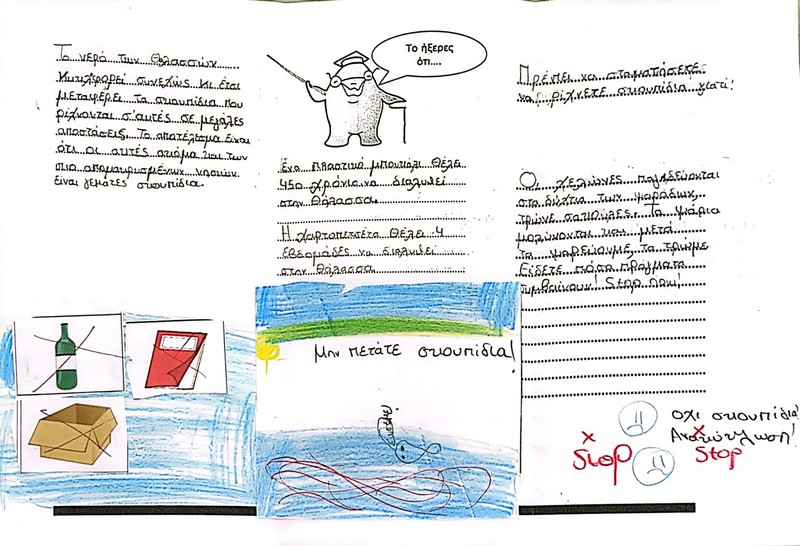 Το νερό των θαλασσών
κυκλοφορεί συνεχώς κι έτσι
μεταφέρει τα σκουπίδια που
ρίχνονται σ'αυτές σε μεγάλες
αποστάσεις. Το αποτέλεσμα είναι
ότι οι αυτές ακόμα και των
πιο απομακρυσμένων νησιών
είναι γεμάτες σκουπίδια.
Το ήξερες
ότι....
Ένα πλαστικό μπουκάλι θέλει
450 χρόνια να διαλυθεί
στην θάλασσα.
Η χαρτοπετσέτα θέλει 4
εβδομάδες να διαλυθεί
στην θάλασσα
Πρέπει να σταματήσετε
να ρίχνετε σκουπίδια γιατί:
Οι χελώνες παγιδεύονται
στα δίχτια των ψαράδων,
τρώνε σακούλες. Τα ψάρια
μολύνονται και μετά
τα ψαρεύουμε, τα τρώμε
Είδετε πόσα πράγματα
συμβαίνουν! Stop που!
Μην πετάτε σκουπίδια!
όχι σκουπίδια!
Ανακύκλωση!
Stop
Stop